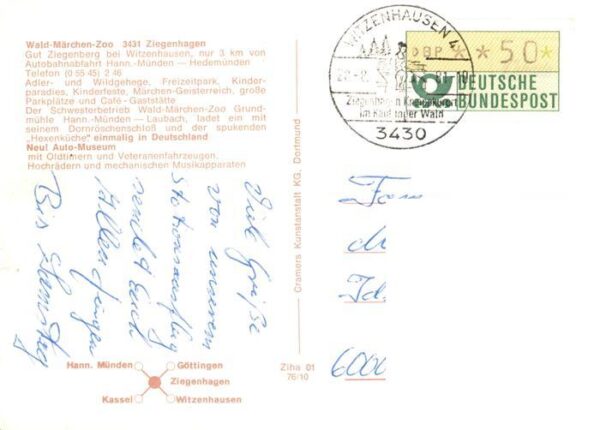 Wald-Märchen-Zoo 3431 Ziegenhagen
Gut Ziegenberg bei Witzenhausen, nur 3 km von
Autobahnabfahrt Hann.-Münden — Hedemünden
Telefon (0 55 45) 2 46
Adler- und Wildgehege, Freizeitpark, Kinder-
paradies, Kinderfeste, Märchen-Geisterreich, große
Parkplätze und Café - Gaststätte
Der Schwesterbetrieb Wald-Märchen-Zoo Grund-
mühle Hann.-Münden — Laubach, ladet ein mit
seinem Dornröschenschloß und der spukenden
„Hexenküche" einmalig in Deutschland
Neu! Auto-Museum
mit Oldtimern und Veteranenfahrzeugen,
Hochrädern und mechanischen Musikapparaten
Viele Grüße
von unserem
Stationsausflug
sendet Euch
Bis Samstag
Hann. Münden
Göttingen
Ziegenhagen
Kassel
Witzenhausen
Ziha 01
76/10
Cramers Kunstanstalt KG, Dortmund
WITZENHAUSEN 4
Ziegenhagen Kneippkurort
im Kaufunger Wald
3430
DBP * * 50 *
DEUTSCHE
BUNDESPOST
Fam
6000